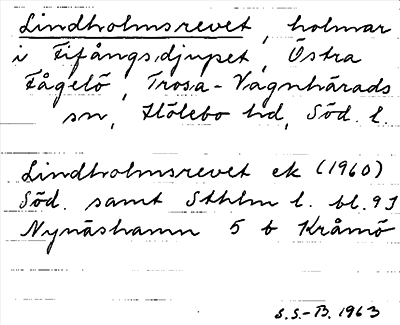 Lindholmsrevet, holmar
i Fifångsdjupet, Östra
Fågelö, Trosa-Vagnhärads
sn, Hölebo hd, Söd. l.
Lindholmsrevet ek (1960)
Söd. samt Sthlm l. bl. 9I
Nynäshamn 5 b Kråmö
S.S.-B. 1963